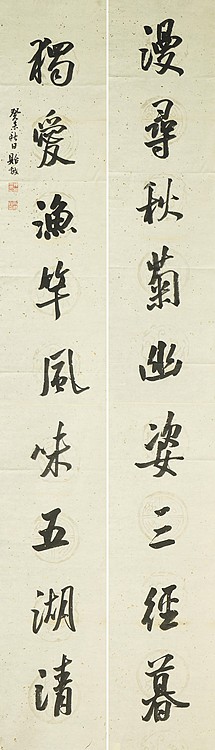 漫尋秋菊幽姿三徑暮
獨愛漁竿風味五湖清
癸未秋日